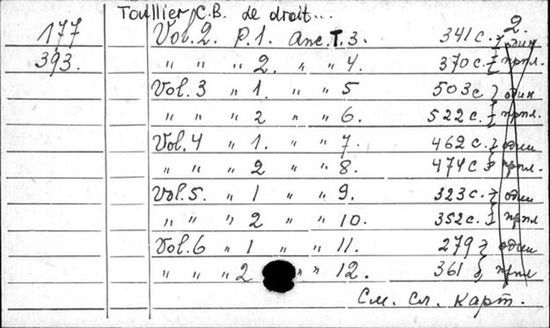 Toullier C.B. le droit...
2.
177 Vol.2. P.1. Anc.T.3. 341 c. один
393. " " " 2. " " 4. 370 c. прпл.
Vol.3 " 1. " " 5 503 c один
" " " 2 " " 6. 522 c. прпл.
Vol.4 " 1. " " 7. 462 c. один
" " " 2 " " 8. 474 c прпл.
Vol.5. " 1 " " 9. 323 c. один
" " " 2 " " 10. 352 c. прпл
Vol.6 " 1 " " 11. 279 один
" " " 2 " " 12. 361 прпл
См. сл. карт.